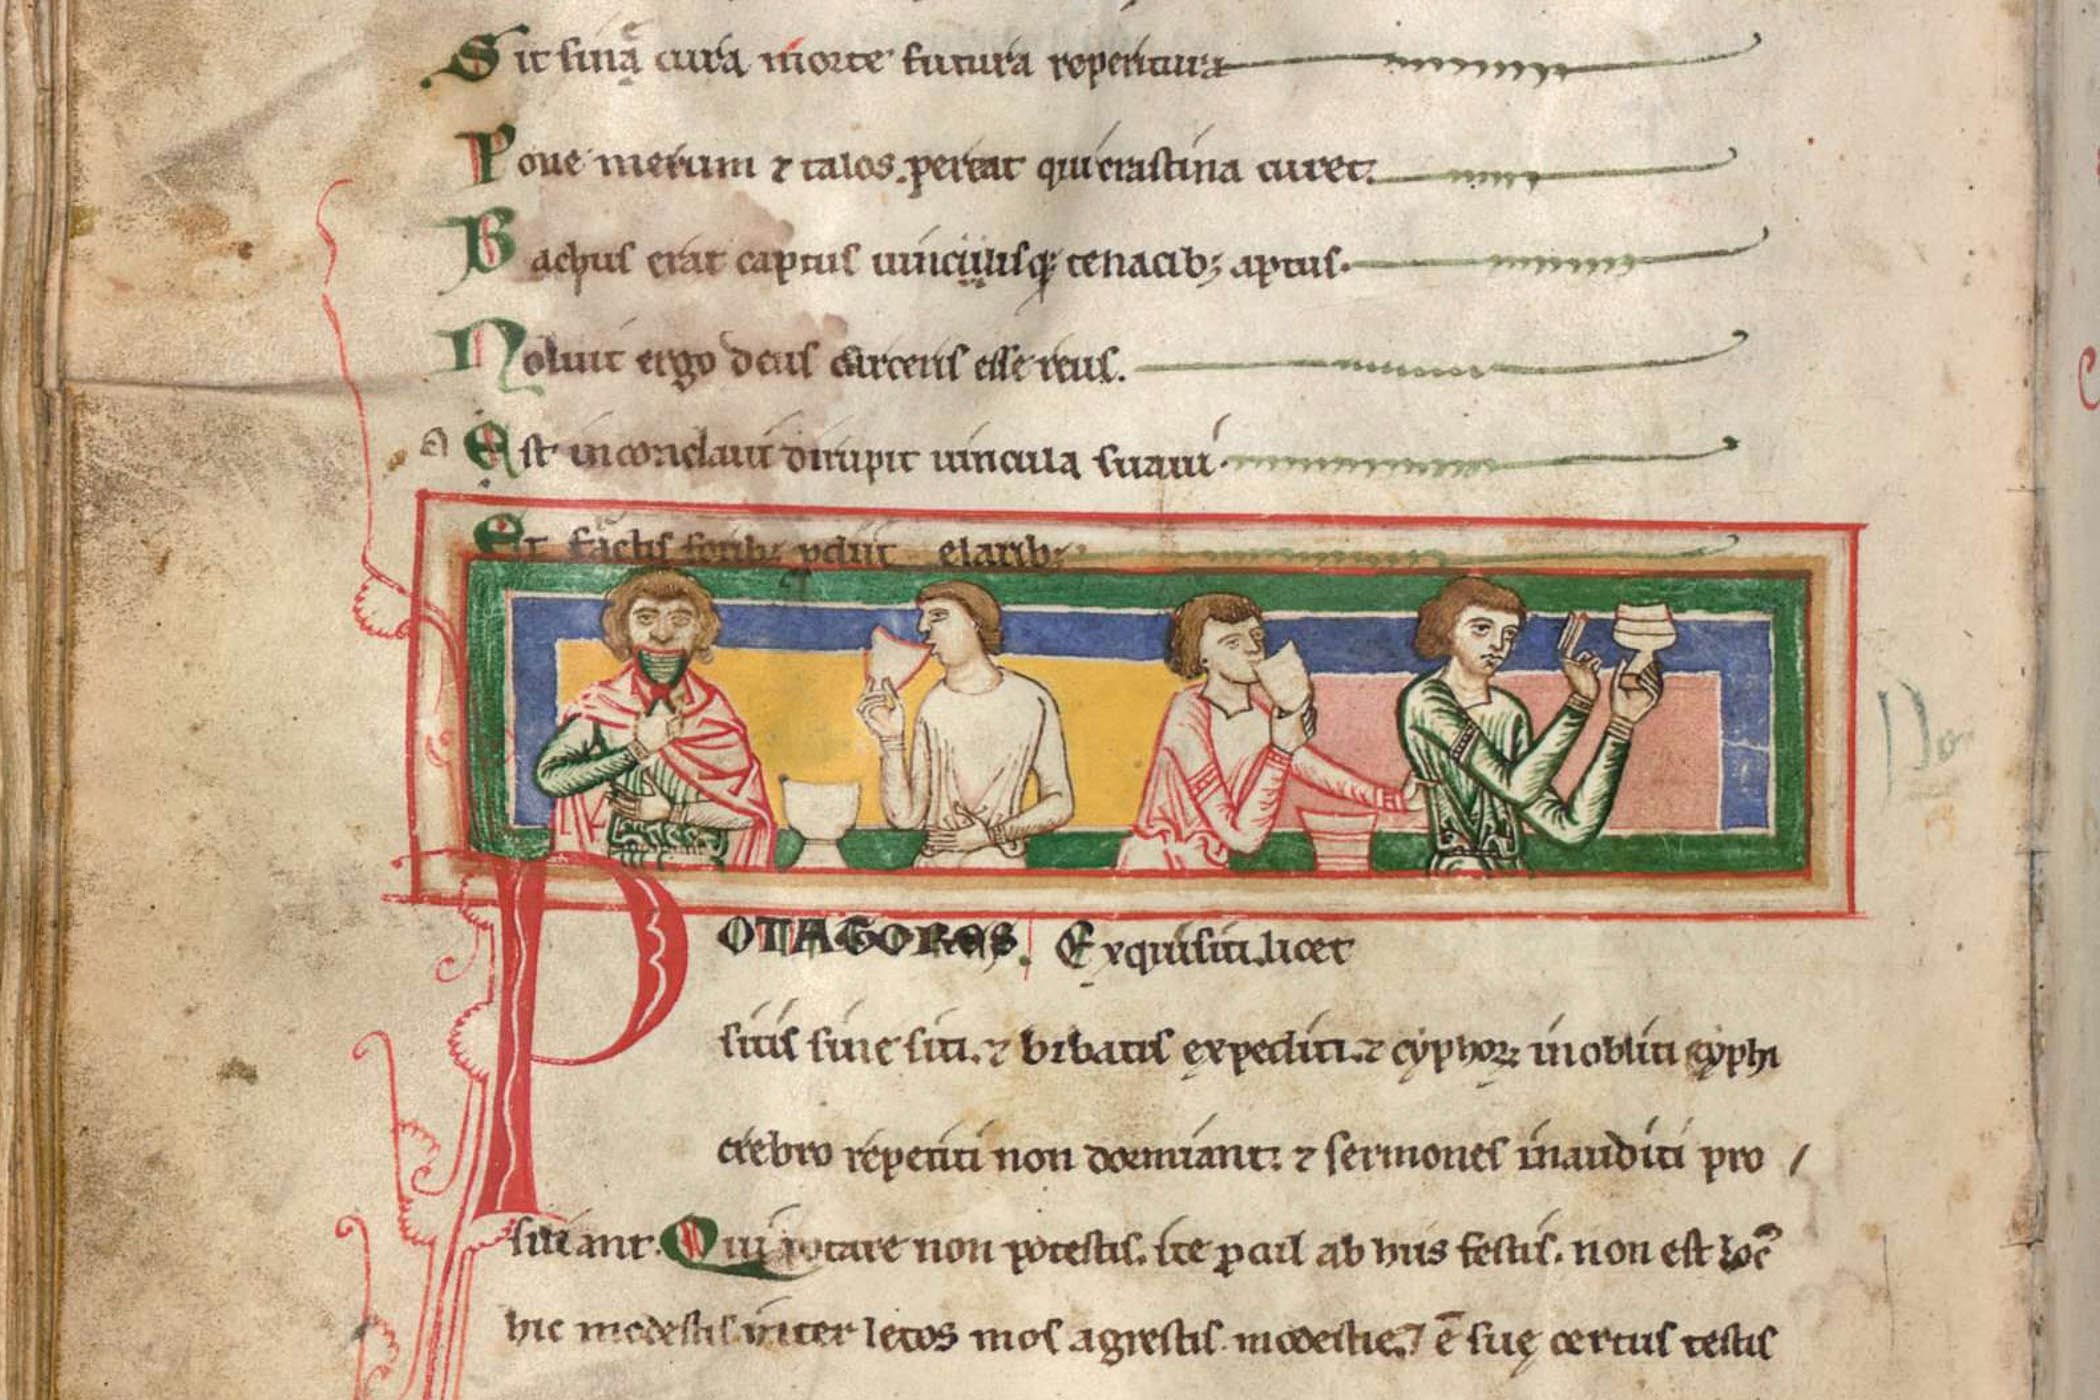 Sit sinā cura morte futura repentura
Pone merum ⁊ talos. pereat qui crastina curet.
Bachus erat captus uinculisq; tenacib; aptus.
Noluit ergo deus carceris esse reus.
a Ast in conclaui dirupit uincula suaui.
Et fractis forib; ꝓdiit elarib;
POTATORES. Exquisiti. licet
sitis sine siti. ⁊ bibatis expediti. ⁊ cyphoꝝ inobliti cyphi
crebro repetiti non dormiant: ⁊ sermones inauditi pro
siliant. Qui potare non potestis. ite ꝓcul ab hiis festis. non est loc᷒
hic modestis. inter letos mos agrestis. modestie. ē suę certus testis